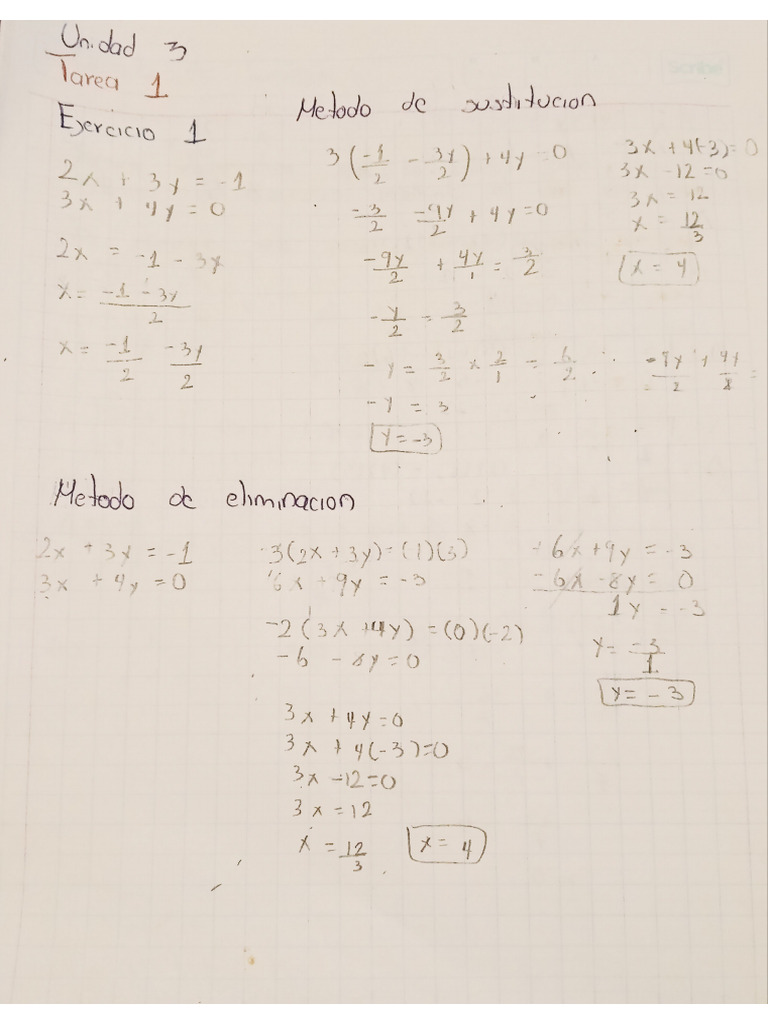 Unidad 3
Tarea 1
Ejercicio 1
2x + 3y = -1
3x + 4y = 0
2x = -1 - 3x
x = -1 - 3y / 2
x = -1/2 -3y/2
Metodo de sustitucion
3(-1/2 - 3y/2) + 4y = 0
-3/2 -9y/2 + 4y = 0
-9y/2 + 4y/1 = 3/2
-y/2 = 3/2
-y = 3/2 x 2/1 = 6/2
-y = 3
y = -3
3x + 4(-3) = 0
3x - 12 = 0
3x = 12
x = 12/3
x = 4
Metodo de eliminacion
2x + 3y = -1
3x + 4y = 0
3(2x + 3y) = (1)(3)
6x + 9y = -3
-2(3x + 4y) = (0)(-2)
-6 - 8y = 0
3x + 4y = 0
3x + 4(-3) = 0
3x - 12 = 0
3x = 12
x = 12/3
x = 4
6x + 9y = -3
-6x - 8y = 0
1y = -3
y = -3/1
y = -3